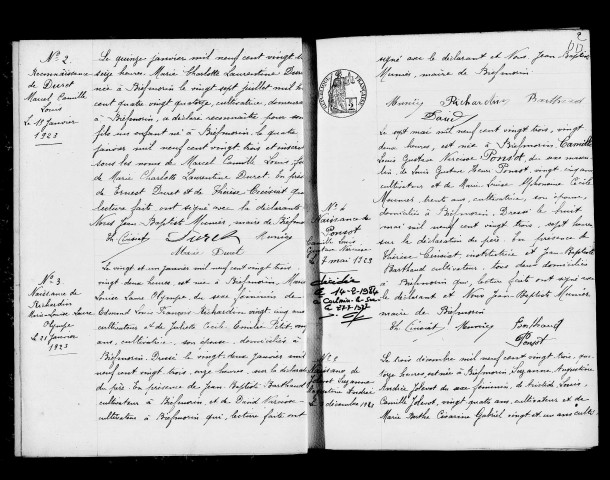 Nº 2.
Reconnaissance
de Duret
Marcel Camille
Louis
Le 15 Janvier
1923
Le quinze janvier mil neuf cent vingt
seize heures, Marie Charlotte Laurentine Duret
née à Biefmorin le vingt sept juillet mil
cent quatre vingt quatorze, cultivatrice, demeurant
à Biefmorin, a déclaré reconnaître pour son
fils un enfant né à Biefmorin le quatre
janvier mil neuf cent vingt trois et inscrit
sous les noms de Marcel Camille Louis, fils
de Marie Charlotte Laurentine Duret. En présence
de Ernest Duret et de Thérèse
lecture faite ont signé avec la déclarante
Nous Jean-Baptiste Munier, maire de Biefmorin
Duret Munier
Marie Duret
Nº 3.
Naissance de
Richardin
Marie-Louise Laure
Olympe
Le 21 Janvier
1923
Le vingt et un janvier mil neuf cent vingt trois
vingt deux heures, est née à Biefmorin, Marie
Louise Laure Olympe, du sexe féminin de
Edmond Louis François Richardin, vingt cinq ans
cultivateur et de Juliette Cécile Emilie
ans, cultivatrice, son épouse, domiciliés à
Biefmorin. Dressé le vingt deux janvier mil
neuf cent vingt trois, onze heures, sur la déclaration
du père. En présence de Jean Baptiste Barthaud
cultivateur à Biefmorin, et de David Narcisse
cultivateur à Biefmorin qui, lecture faite ont
2
signé avec le déclarant et Nous Jean-Baptiste
Munier, maire de Biefmorin
Munier Richardin Barthaud
David
Nº 4
Naissance de
Ponsot
Camille Louis
Gustave Narcisse
7 mai 1923
décédée
le 14-2-1984
Le sept mai mil neuf cent vingt trois, vingt
deux heures, est né à Biefmorin, Camille
Louis Gustave Narcisse Ponsot, du sexe masculin
de Louis Gustave Henri Ponsot, vingt cinq ans
cultivateur et de Marie Louise Alphonsine Cécile
Meunier, trente ans, cultivatrice, son épouse,
domiciliés à Biefmorin. Dressé le huit
mai mil neuf cent vingt trois, sept heures
sur la déclaration du père. En présence de
Thérèse institutrice et de Jean Baptiste
Barthaud cultivateur, tous deux domiciliés
à Biefmorin qui, lecture faite ont signé avec
le déclarant et Nous Jean-Baptiste Munier
maire de Biefmorin
Munier Barthaud
Ponsot
Naissance de
Suzanne
Augustine Andrée
décembre 1923
Le trois décembre mil neuf cent vingt trois,
heures, est née à Biefmorin Suzanne Augustine
Andrée du sexe féminin, de Louis
Camille vingt quatre ans, cultivateur et de
Marie Berthe Césarine Gabriel, vingt et un ans